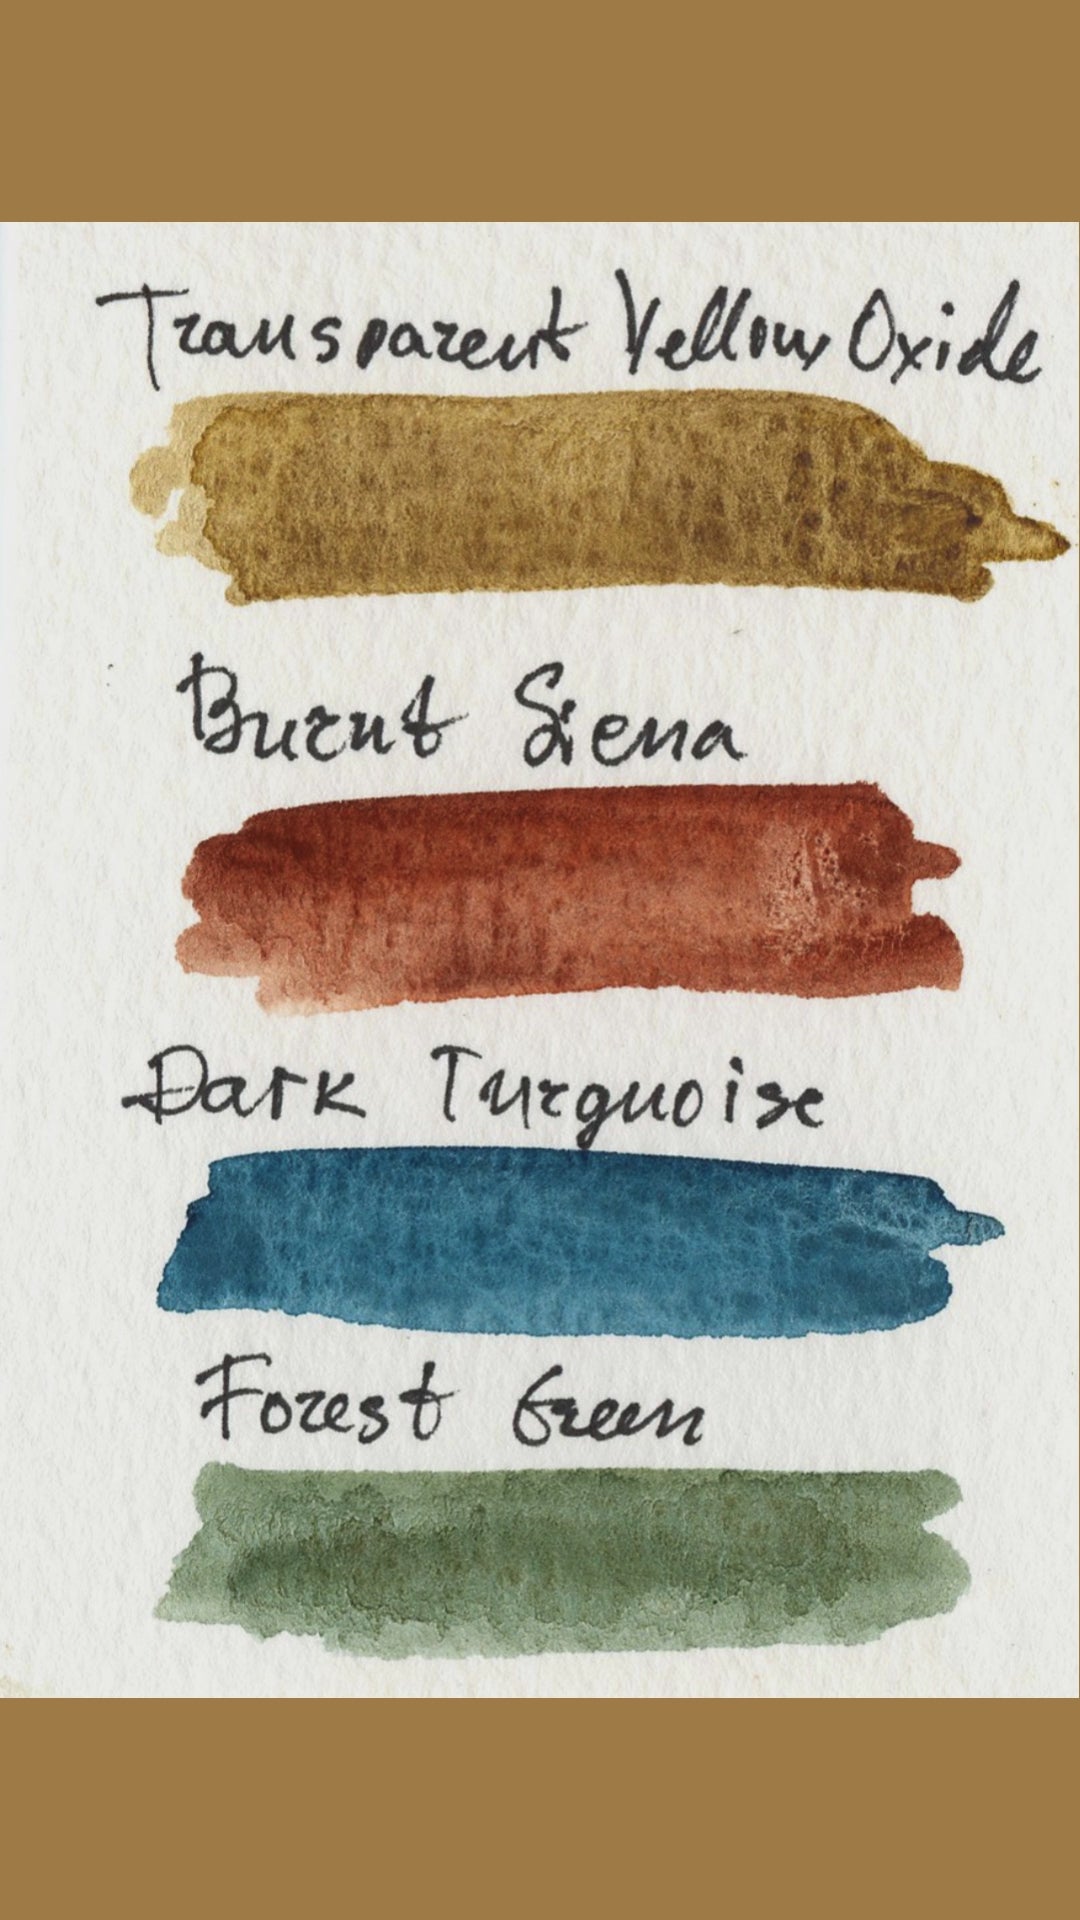 Transparent Yellow Oxide
Burnt Siena
Dark Turquoise
Forest Green